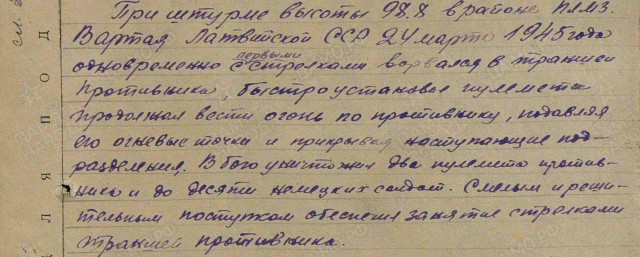 При штурме высоты 98.8 в районе клмз.
Вартая Латвийской ССР 24 марта 1945 года
одновременно с первыми стрелками ворвался в траншеи
противника, быстро установил пулемет и
продолжал вести огонь по противнику, подавляя
его огневые точки и прикрывая наступающие под-
разделения. В бою уничтожил два пулемета против-
ника и до десяти немецких солдат. Смелым и реши-
тельным поступком обеспечил занятие стрелками
траншей противника.
Л Я П О Д